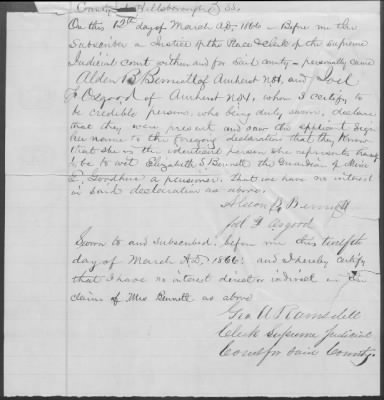 County of Hillsborough } SS.
On this 12th day of March A.D. 1866 - Before me the
Subscriber a Justice of the Peace & clerk of the supreme
Judicial court within and for said county - personally came
Alden B Bennett of Amherst N.H. and Joel
F. Osgood of Amherst N.H. whom I certify to
be credible persons, who being duly sworn, declare
that they were present and saw the applicant sign
her name to the foregoing declaration that they know
that she is the identical person she represents herself
to be to wit Elizabeth S Bennett the Guardian of
a pensioner. that we have no interest
in said declaration as above.
Alden B. Bennett
Joel F Osgood
Sworn to and subscribed before me this twelfth
day of March A.D. 1866: and I hereby certify
that I have no interest direct or indirect in the
claim of Mrs Bennett as above
Geo A Ramsdell
Clerk Supreme Judicial
Court for said County.